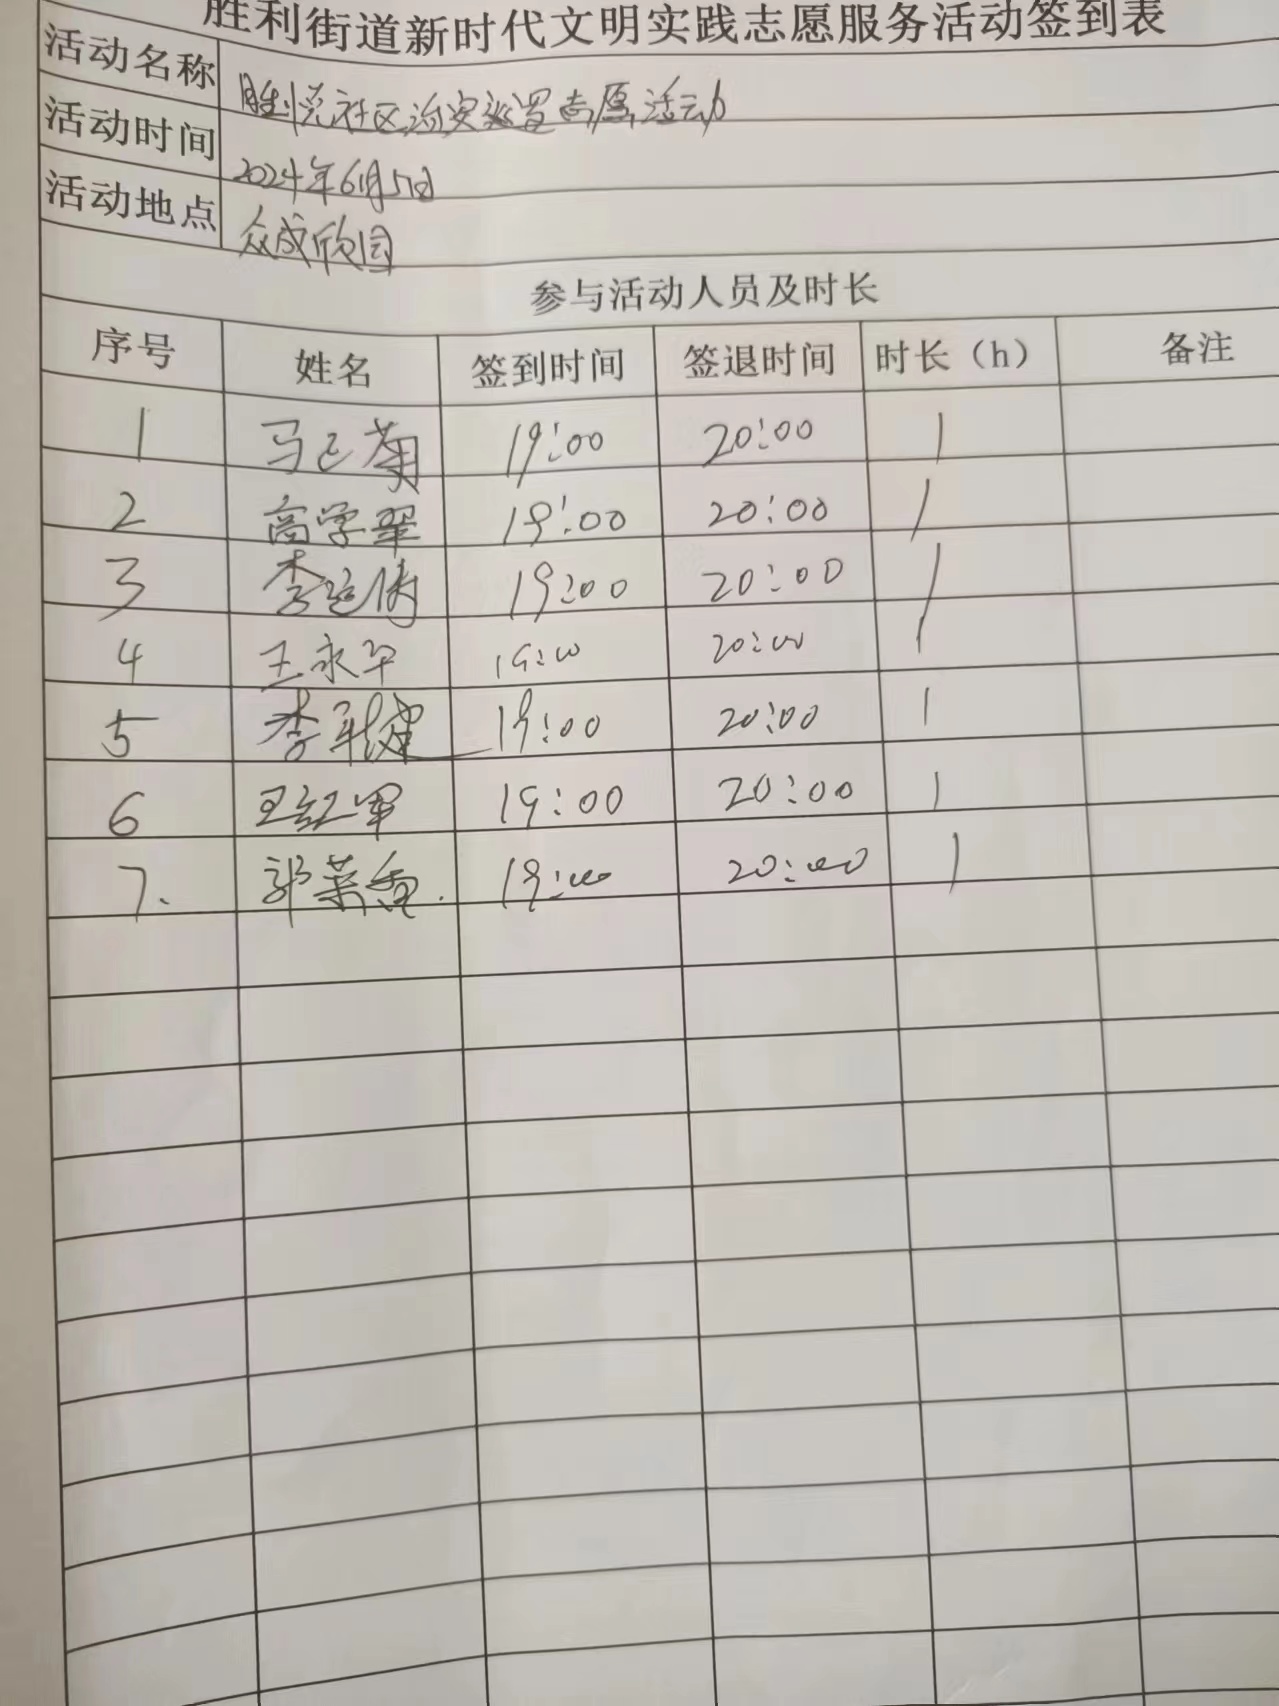 胜利街道新时代文明实践志愿服务活动签到表
活动名称 胜悦社区治安巡逻志愿活动
活动时间 2024年6月5日
活动地点 众成欣园
参与活动人员及时长
序号 姓名 签到时间 签退时间 时长（h） 备注
1 马正菊 19:00 20:00 1
2 高学翠 19:00 20:00 1
3 李 19:00 20:00 1
4 王永平 19:00 20:00 1
5 李 19:00 20:00 1
6 王红军 19:00 20:00 1
7. 郭荣香. 19:00 20:00 1